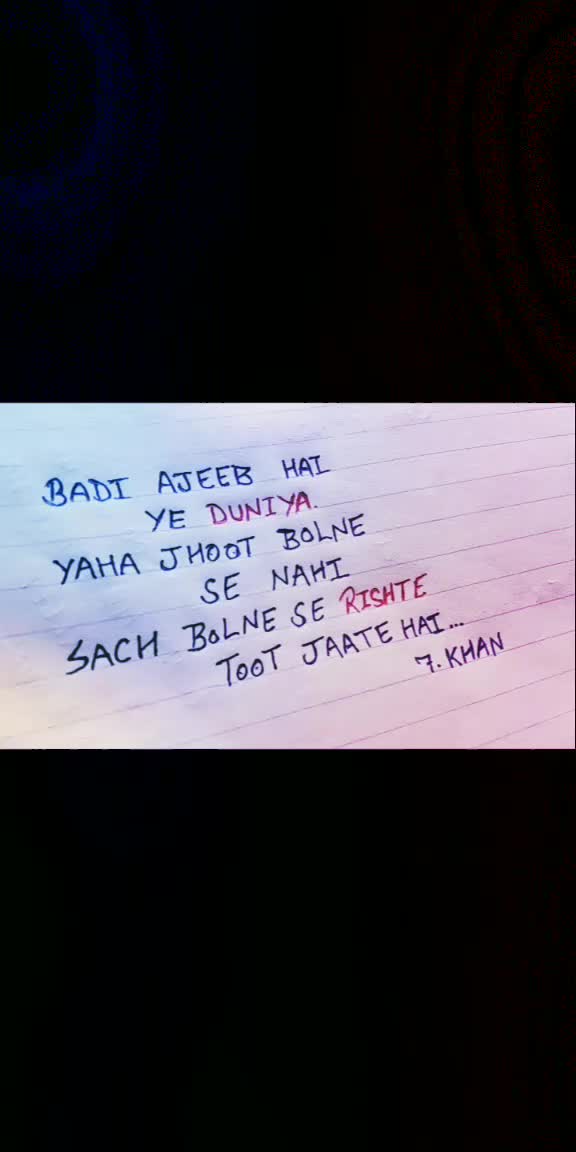 BADI AJEEB HAI
YE DUNIYA.
YAHA JHOOT BOLNE
SE NAHI
SACH BOLNE SE RISHTE
TOOT JAATE HAI...
7. KHAN